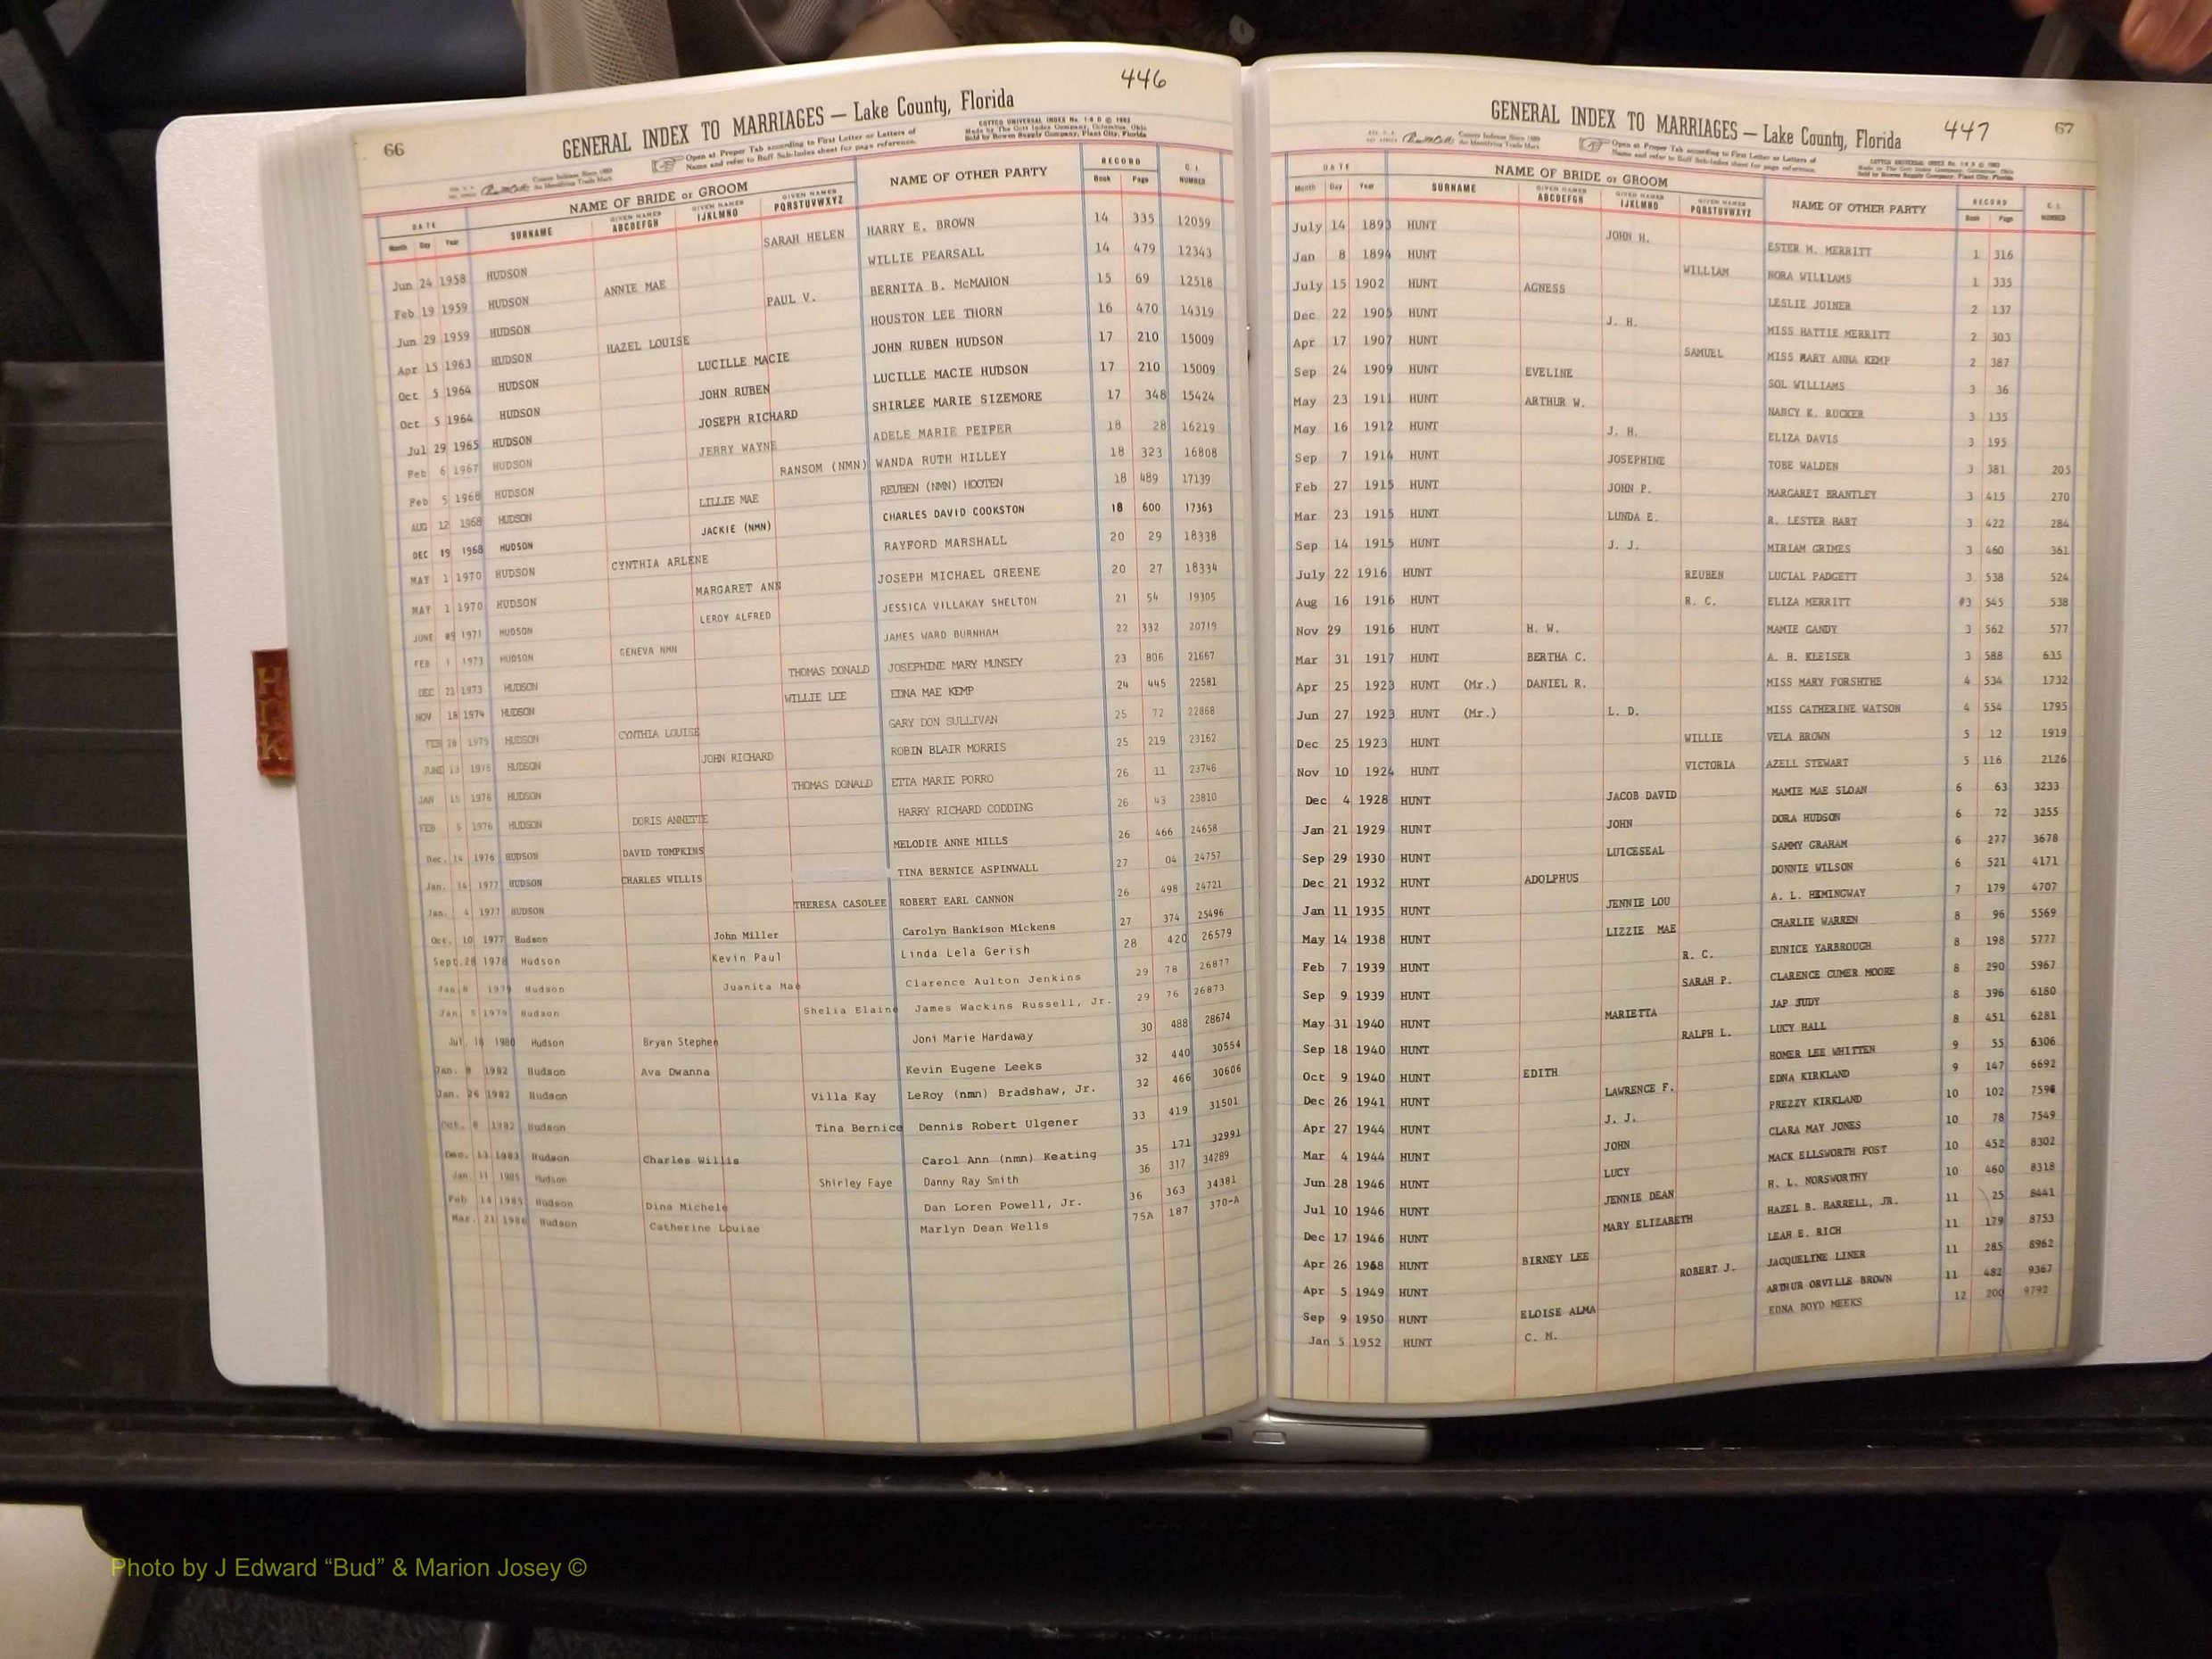 446
66
GENERAL INDEX TO MARRIAGES — Lake County, Florida
COTTCO UNIVERSAL INDEX No. 1-8 D © 1963
Made by The Cott Index Company, Columbus, Ohio
Sold by Bowen Supply Company, Plant City, Florida
County Indexes Since 1888
An Identifying Trade Mark
Open at Proper Tab according to First Letter or Letters of
Name and refer to Buff Sub-Index sheet for page reference.
DATE NAME OF BRIDE or GROOM NAME OF OTHER PARTY RECORD C. I. NUMBER
Month Day Year SURNAME GIVEN NAMES ABCDEFGH GIVEN NAMES IJKLMNO GIVEN NAMES PQRSTUVWXYZ Book Page
Jun 24 1958 HUDSON SARAH HELEN HARRY E. BROWN 14 335 12059
Feb 19 1959 HUDSON ANNIE MAE WILLIE PEARSALL 14 479 12343
Jun 29 1959 HUDSON PAUL V. BERNITA B. McMAHON 15 69 12518
Apr 15 1963 HUDSON HAZEL LOUISE HOUSTON LEE THORN 16 470 14319
Oct 5 1964 HUDSON LUCILLE MACIE JOHN RUBEN HUDSON 17 210 15009
Oct 5 1964 HUDSON JOHN RUBEN LUCILLE MACIE HUDSON 17 210 15009
Jul 29 1965 HUDSON JOSEPH RICHARD SHIRLEE MARIE SIZEMORE 17 348 15424
Feb 6 1967 HUDSON JERRY WAYNE ADELE MARIE PEIFER 18 28 16219
Feb 5 1968 HUDSON RANSOM (NMN) WANDA RUTH HILLEY 18 323 16808
AUG 12 1968 HUDSON LILLIE MAE REUBEN (NMN) HOOTEN 18 489 17139
DEC 19 1968 HUDSON JACKIE (NMN) CHARLES DAVID COOKSTON 18 600 17363
MAY 1 1970 HUDSON CYNTHIA ARLENE RAYFORD MARSHALL 20 29 18338
MAY 1 1970 HUDSON MARGARET ANN JOSEPH MICHAEL GREENE 20 27 18334
JUNE 09 1971 HUDSON LEROY ALFRED JESSICA VILLAKAY SHELTON 21 54 19305
FEB 1 1973 HUDSON GENEVA NMN JAMES WARD BURNHAM 22 332 20719
DEC 21 1973 HUDSON THOMAS DONALD JOSEPHINE MARY MUNSEY 23 806 21667
NOV 18 1974 HUDSON WILLIE LEE EDNA MAE KEMP 24 445 22581
FEB 28 1975 HUDSON CYNTHIA LOUISE GARY DON SULLIVAN 25 72 22868
JUNE 13 1975 HUDSON JOHN RICHARD ROBIN BLAIR MORRIS 25 219 23162
JAN 15 1976 HUDSON THOMAS DONALD ETTA MARIE PORRO 26 11 23746
FEB 5 1976 HUDSON DORIS ANNETTE HARRY RICHARD CODDING 26 43 23810
Dec. 14 1976 HUDSON DAVID TOMPKINS MELODIE ANNE MILLS 26 466 24658
Jan. 14 1977 HUDSON CHARLES WILLIS TINA BERNICE ASPINWALL 27 04 24757
Jan. 4 1977 HUDSON THERESA CASOLEE ROBERT EARL CANNON 26 498 24721
Oct. 10 1977 Hudson John Miller Carolyn Hankison Mickens 27 374 25496
Sept.28 1978 Hudson Kevin Paul Linda Lela Gerish 28 420 26579
Jan.8 1979 Hudson Juanita Mae Clarence Aulton Jenkins 29 78 26877
Jan. 5 1979 Hudson Shelia Elaine James Wackins Russell, Jr. 29 76 26873
Jul. 18 1980 Hudson Bryan Stephen Joni Marie Hardaway 30 488 28674
Jan. 8 1982 Hudson Ava Dwanna Kevin Eugene Leeks 32 440 30554
Jan. 26 1982 Hudson Villa Kay LeRoy (nmn) Bradshaw, Jr. 32 466 30606
Oct. 8 1982 Hudson Tina Bernice Dennis Robert Ulgener 33 419 31501
Dec. 13 1983 Hudson Charles Willis Carol Ann (nmn) Keating 35 171 32991
Jan. 11 1985 Hudson Shirley Faye Danny Ray Smith 36 317 34289
Feb 14 1985 Hudson Dina Michele Dan Loren Powell, Jr. 36 363 34381
Mar. 21 1986 Hudson Catherine Louise Marlyn Dean Wells 75A 187 370-A
H
I
K
447
67
GENERAL INDEX TO MARRIAGES — Lake County, Florida
County Indexes Since 1888
An Identifying Trade Mark
Open at Proper Tab according to First Letter or Letters of
Name and refer to Buff Sub-Index sheet for page reference.
COTTCO UNIVERSAL INDEX No. 1-8 D © 1963
Made by The Cott Index Company, Columbus, Ohio
Sold by Bowen Supply Company, Plant City, Florida
DATE NAME OF BRIDE or GROOM NAME OF OTHER PARTY RECORD C. I. NUMBER
Month Day Year SURNAME GIVEN NAMES ABCDEFGH GIVEN NAMES IJKLMNO GIVEN NAMES PQRSTUVWXYZ Book Page
July 14 1893 HUNT JOHN H. ESTER M. MERRITT 1 316
Jan 8 1894 HUNT WILLIAM NORA WILLIAMS 1 335
July 15 1902 HUNT AGNESS LESLIE JOINER 2 137
Dec 22 1905 HUNT J. H. MISS HATTIE MERRITT 2 303
Apr 17 1907 HUNT SAMUEL MISS MARY ANNA KEMP 2 387
Sep 24 1909 HUNT EVELINE SOL WILLIAMS 3 36
May 23 1911 HUNT ARTHUR W. NANCY K. RUCKER 3 135
May 16 1912 HUNT J. H. ELIZA DAVIS 3 195
Sep 7 1914 HUNT JOSEPHINE TOBE WALDEN 3 381 205
Feb 27 1915 HUNT JOHN P. MARGARET BRANTLEY 3 415 270
Mar 23 1915 HUNT LUNDA E. R. LESTER HART 3 422 284
Sep 14 1915 HUNT J. J. MIRIAM GRIMES 3 460 361
July 22 1916 HUNT REUBEN LUCIAL PADGETT 3 538 524
Aug 16 1916 HUNT R. C. ELIZA MERRITT #3 545 538
Nov 29 1916 HUNT H. W. MAMIE GANDY 3 562 577
Mar 31 1917 HUNT BERTHA C. A. H. KLEISER 3 588 635
Apr 25 1923 HUNT (Mr.) DANIEL R. MISS MARY FORSHTHE 4 534 1732
Jun 27 1923 HUNT (Mr.) L. D. MISS CATHERINE WATSON 4 554 1795
Dec 25 1923 HUNT WILLIE VELA BROWN 5 12 1919
Nov 10 1924 HUNT VICTORIA AZELL STEWART 5 116 2126
Dec 4 1928 HUNT JACOB DAVID MAMIE MAE SLOAN 6 63 3233
Jan 21 1929 HUNT JOHN DORA HUDSON 6 72 3255
Sep 29 1930 HUNT LUICESEAL SAMMY GRAHAM 6 277 3678
Dec 21 1932 HUNT ADOLPHUS DONNIE WILSON 6 521 4171
Jan 11 1935 HUNT JENNIE LOU A. L. HEMINGWAY 7 179 4707
May 14 1938 HUNT LIZZIE MAE CHARLIE WARREN 8 96 5569
Feb 7 1939 HUNT R. C. EUNICE YARBROUGH 8 198 5777
Sep 9 1939 HUNT SARAH P. CLARENCE CUMER MOORE 8 290 5967
May 31 1940 HUNT MARIETTA JAP JUDY 8 396 6180
Sep 18 1940 HUNT RALPH L. LUCY HALL 8 451 6281
Oct 9 1940 HUNT EDITH HOMER LEE WHITTEN 9 55 6306
Dec 26 1941 HUNT LAWRENCE F. EDNA KIRKLAND 9 147 6692
Apr 27 1944 HUNT J. J. PREZZY KIRKLAND 10 102 7598
Mar 4 1944 HUNT JOHN CLARA MAY JONES 10 78 7549
Jun 28 1946 HUNT LUCY MACK ELLSWORTH POST 10 452 8302
Jul 10 1946 HUNT JENNIE DEAN H. L. NORSWORTHY 10 460 8318
Dec 17 1946 HUNT MARY ELIZABETH HAZEL B. HARRELL, JR. 11 25 8441
Apr 26 1948 HUNT BIRNEY LEE LEAH E. RICH 11 179 8753
Apr 5 1949 HUNT ROBERT J. JACQUELINE LINER 11 285 8962
Sep 9 1950 HUNT ELOISE ALMA ARTHUR ORVILLE BROWN 11 482 9367
Jan 5 1952 HUNT C. M. EDNA BOYD MEEKS 12 200 9792
Photo by J Edward “Bud” & Marion Josey ©